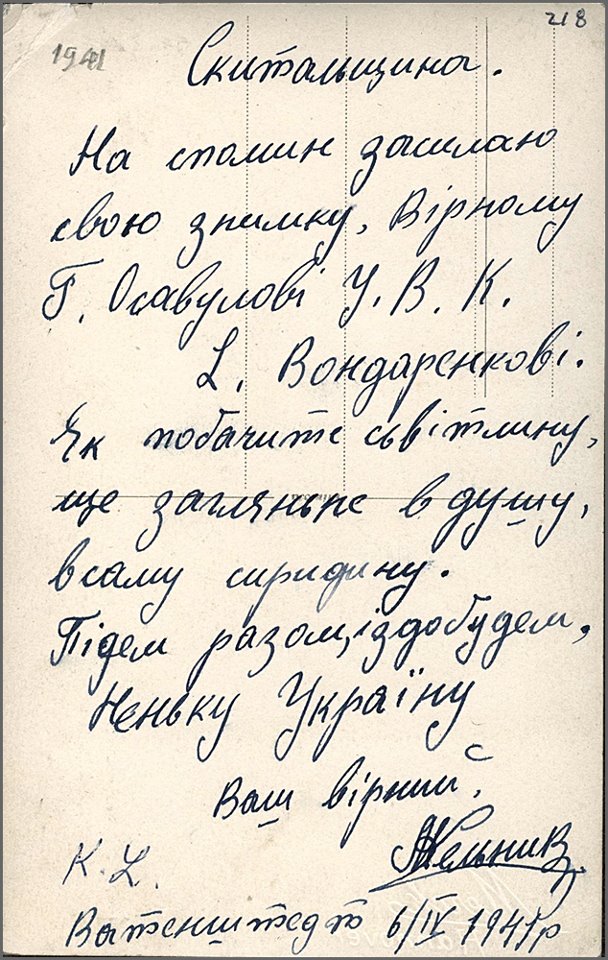 218
1941
Скитальщина.
На спомин засилаю
свою знимку, Вірному
Г. Осавулові У. В. К.
L. Бондаренкові.
Як побачите сьвітлину,
ще загляньте в душу,
в саму сиридину.
Підем разом, іздобудем,
Неньку Україну
Ваш вірний,
К. L.
Ватенштедт 6/IV 1941р